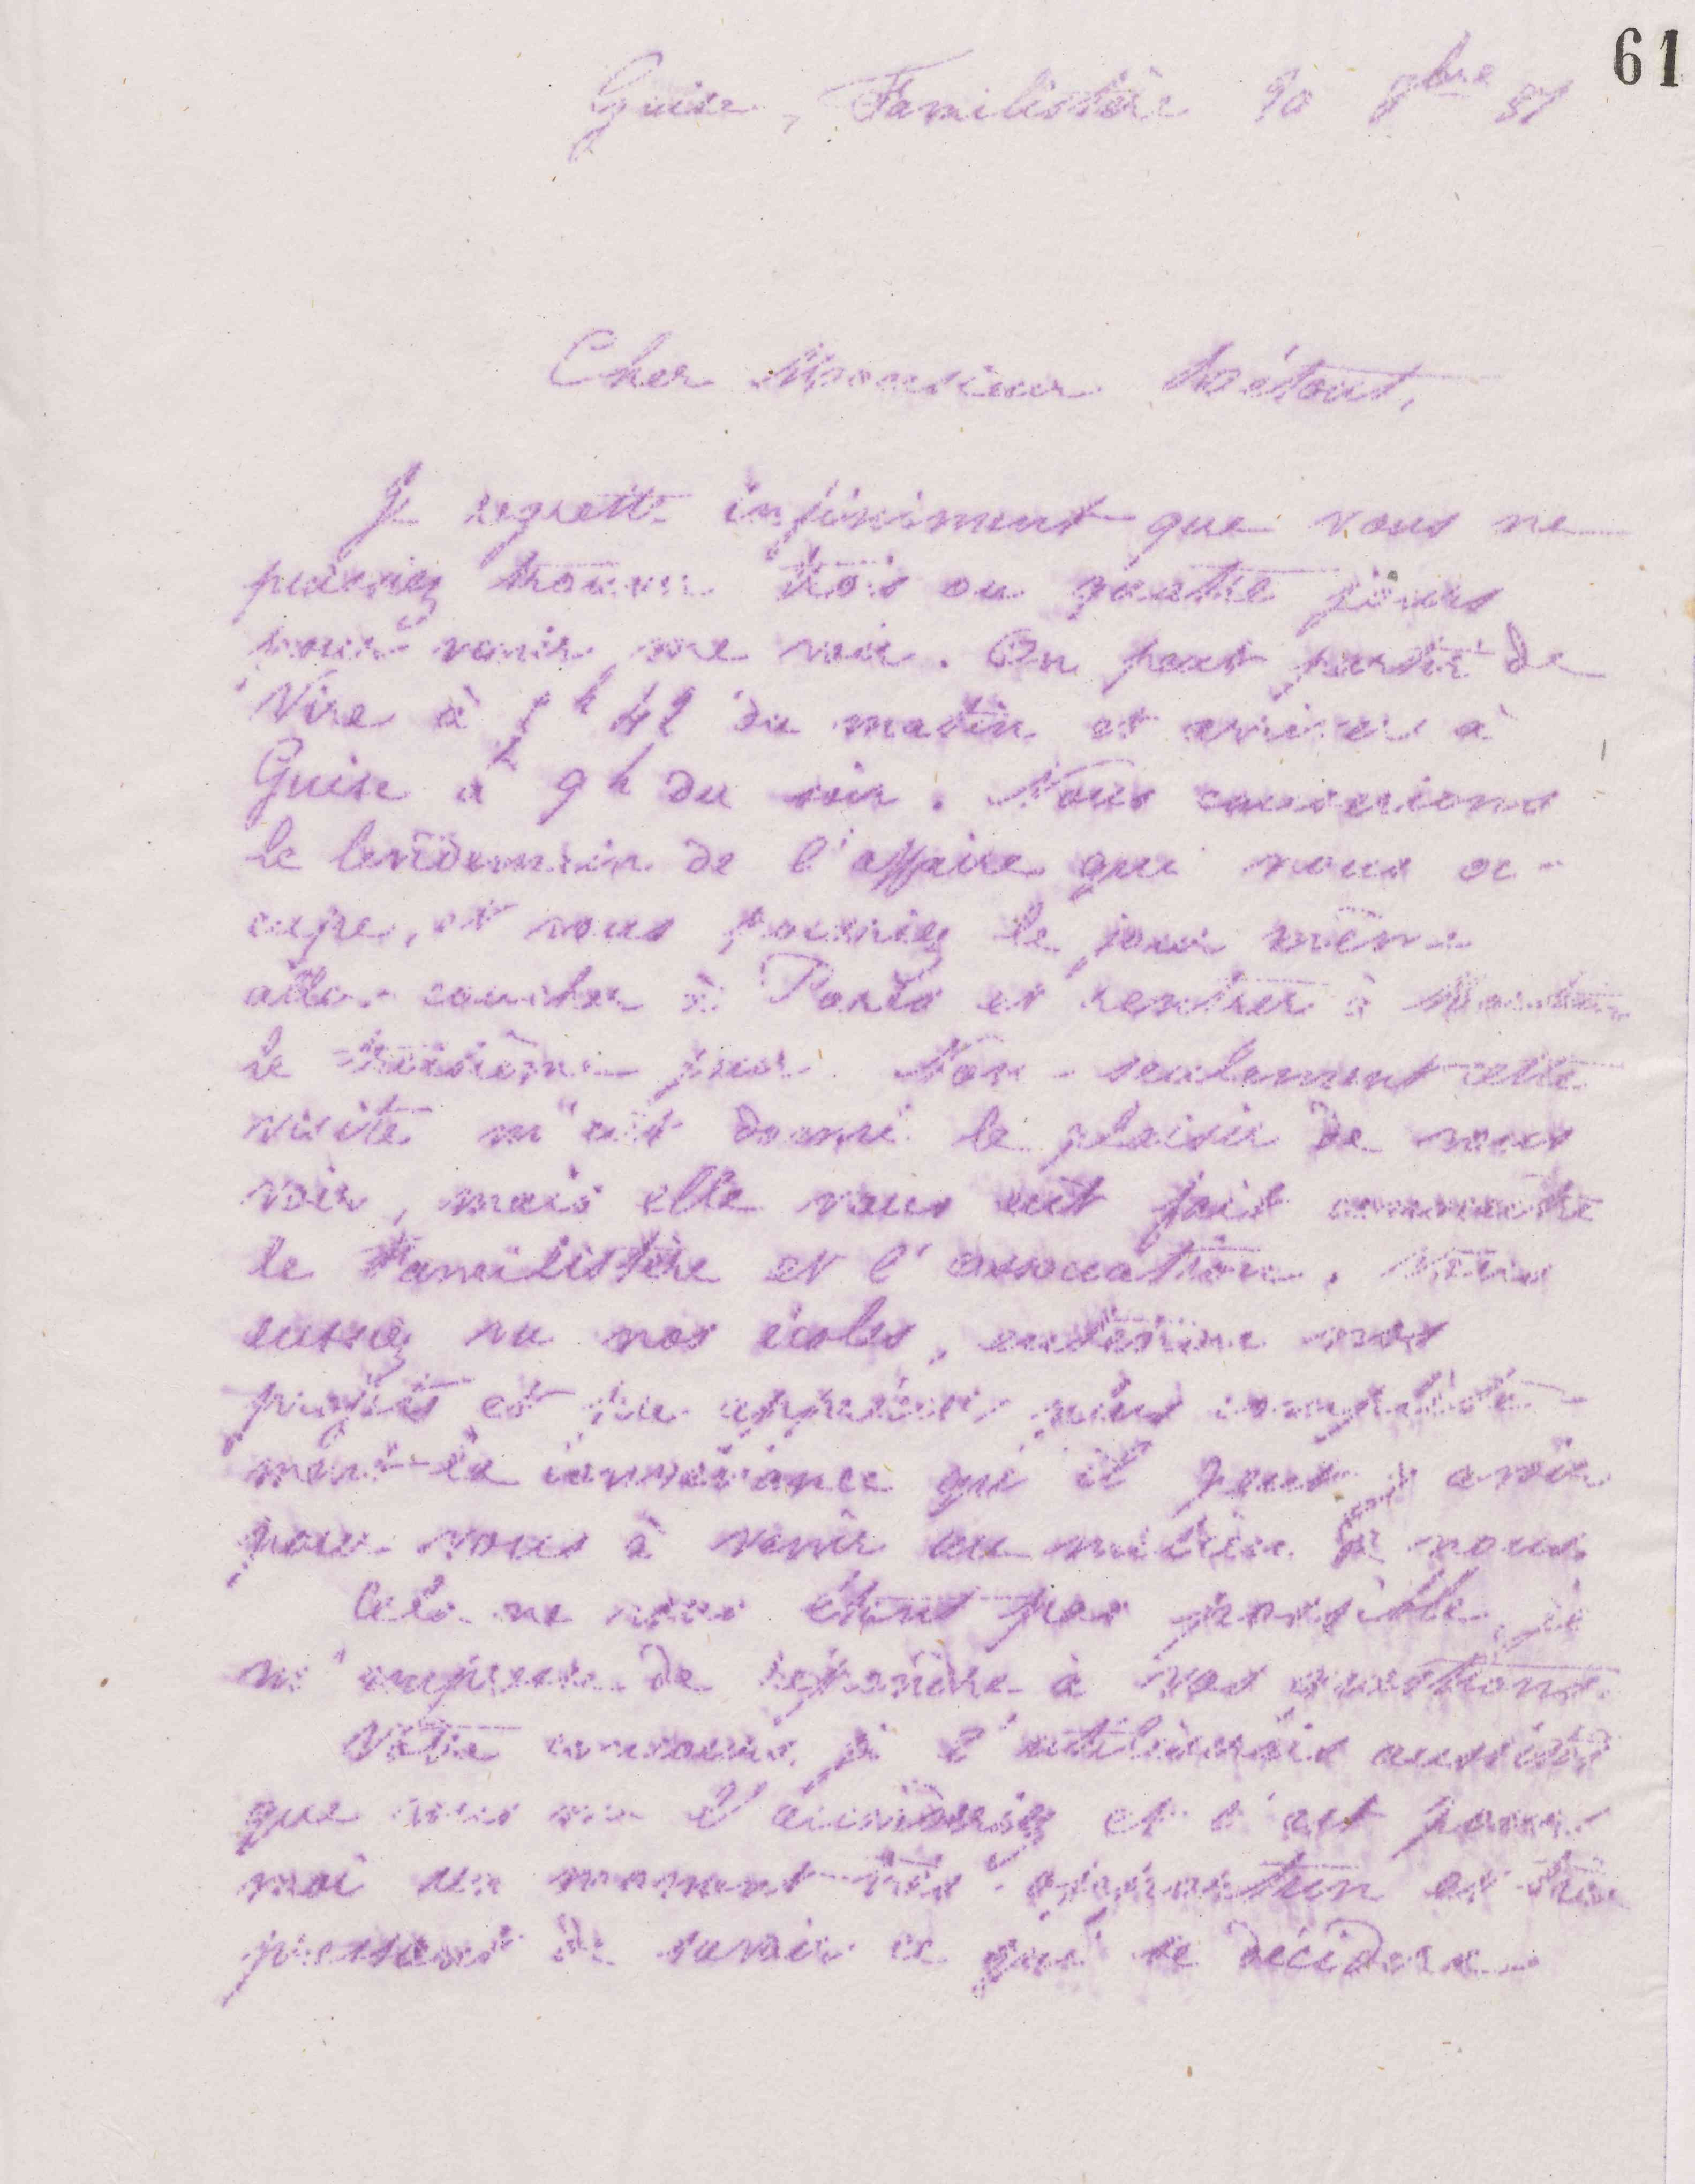 61
Guise, Familistère 8bre 87
Cher Monsieur
Je regrette infiniment que vous ne
puissiez trouver trois ou quatre jours
pour venir me voir. On peut partir de
Vire à h 42 du matin et arriver à
Guise à 9h du soir. Nous causerions
le lendemain de l'affaire qui nous oc-
cupe, et vous pourriez le jour même
aller coucher à Paris et rentrer à
le troisième jour. Non-seulement cette
visite m'eût donné le plaisir de vous
voir, mais elle vous eût fait connaître
le Familistère et l'association. Vous
eussiez vu nos écoles, entendu nos
projets et pu apprécier plus complète-
ment la convenance qu'il peut y avoir
pour vous à venir au milieu de nous.
Cela ne vous étant pas possible, je
m'empresse de répondre à vos questions.
Votre concours, je l'utiliserais aussitôt
que vous me l'accorderiez et c'est pour
moi un moment très opportun et très
pressant de savoir ce qui se décidera